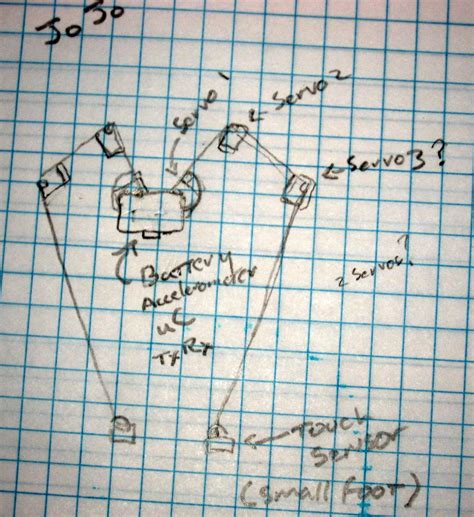 JoJo
Servo 1
Servo2
Servo3?
2 Servos?
Battery
Accelerometer
uC
TxRx
Touch
Sensor
(small foot)